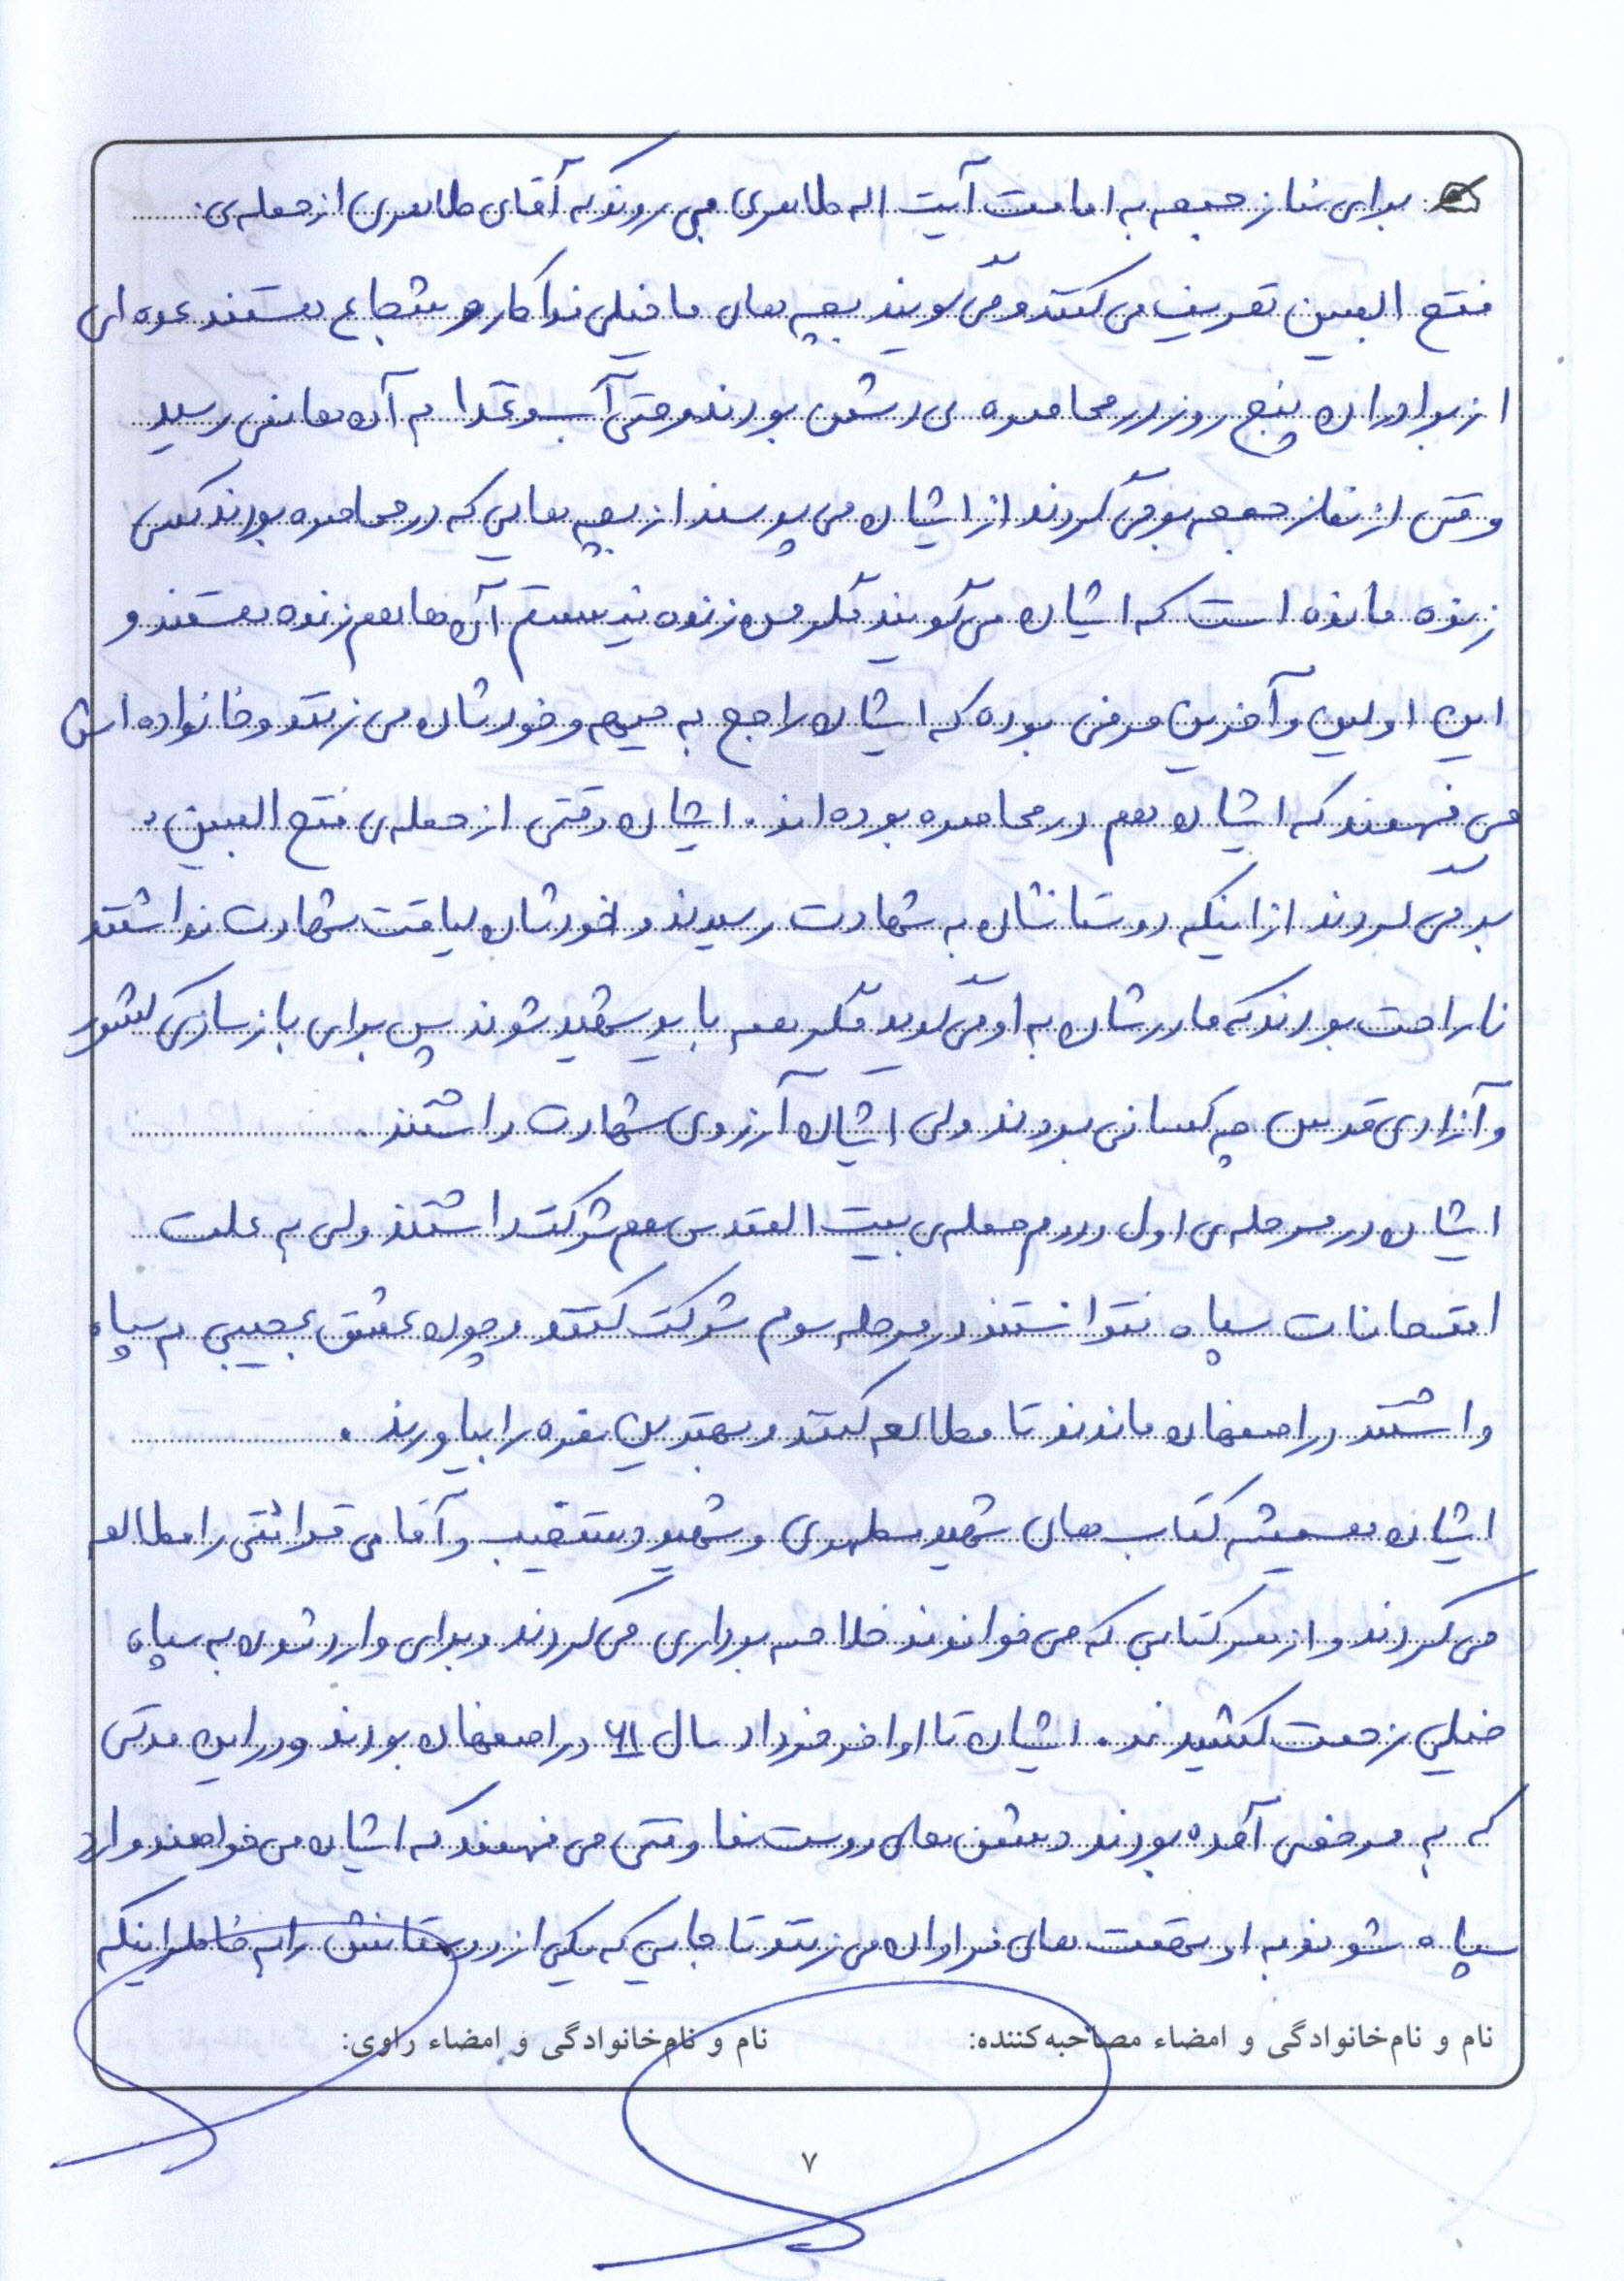 برای نماز جمعه به امامت آیت اله طاهری می روند که آقای طاهری از حمله ی
فتح المبین تعریف می کنند و می گویند بچه های ما خیلی فداکار و شجاع هستند عده ای
از برادران پنج روز در محاصره ی دشمن بودند و حتی آب و غذا به آن ها نمی رسید
وقتی از نماز جمعه برمی گردند از ایشان می پرسند از بچه هایی که در محاصره بودند کسی
زنده مانده است که ایشان می گویند مگر من زنده نیستم آن ها هم زنده هستند و
این اولین و آخرین حرفی بوده که ایشان راجع به جبهه و خودشان می زنند و خانواده اش
می فهمند که ایشان هم در محاصره بوده اند. ایشان وقتی از حمله ی فتح المبین
بر می گردند از اینکه دوستانشان به شهادت رسیدند و خودشان لیاقت شهادت نداشتند
ناراحت بودند که مادرشان به او می گوید مگر همه باید شهید شوند پس برای بازسازی کشور
و آزادی قدس چه کسانی بروند ولی ایشان آرزوی شهادت داشتند.
ایشان در مرحله ی اول و دوم حمله ی بیت المقدس هم شرکت داشتند ولی به علت
امتحانات سپاه نتوانستند در مرحله سوم شرکت کنند و چون عشق عجیبی به سپاه
داشتند در اصفهان ماندند تا مطالعه کنند و بهترین نمره را بیاورند.
ایشان همیشه کتاب های شهید مطهری و شهید دستغیب و آقای قرائتی را مطالعه
می کردند و از هر کتابی که می خواندند خلاصه برداری می کردند و برای وارد شدن به سپاه
خیلی زحمت کشیدند. ایشان تا اواخر خرداد سال ۶۱ در اصفهان بودند و در این مدتی
که به مرخصی آمده بودند دشمن های دوست نما وقتی می فهمند که ایشان می خواهند وارد
سپاه شوند به او تهمت های فراوان می زنند تا جایی که یکی از دوستانش را به خاطر اینکه
نام و نام‌خانوادگی و امضاء مصاحبه‌کننده: نام و نام‌خانوادگی و امضاء راوی:
۷